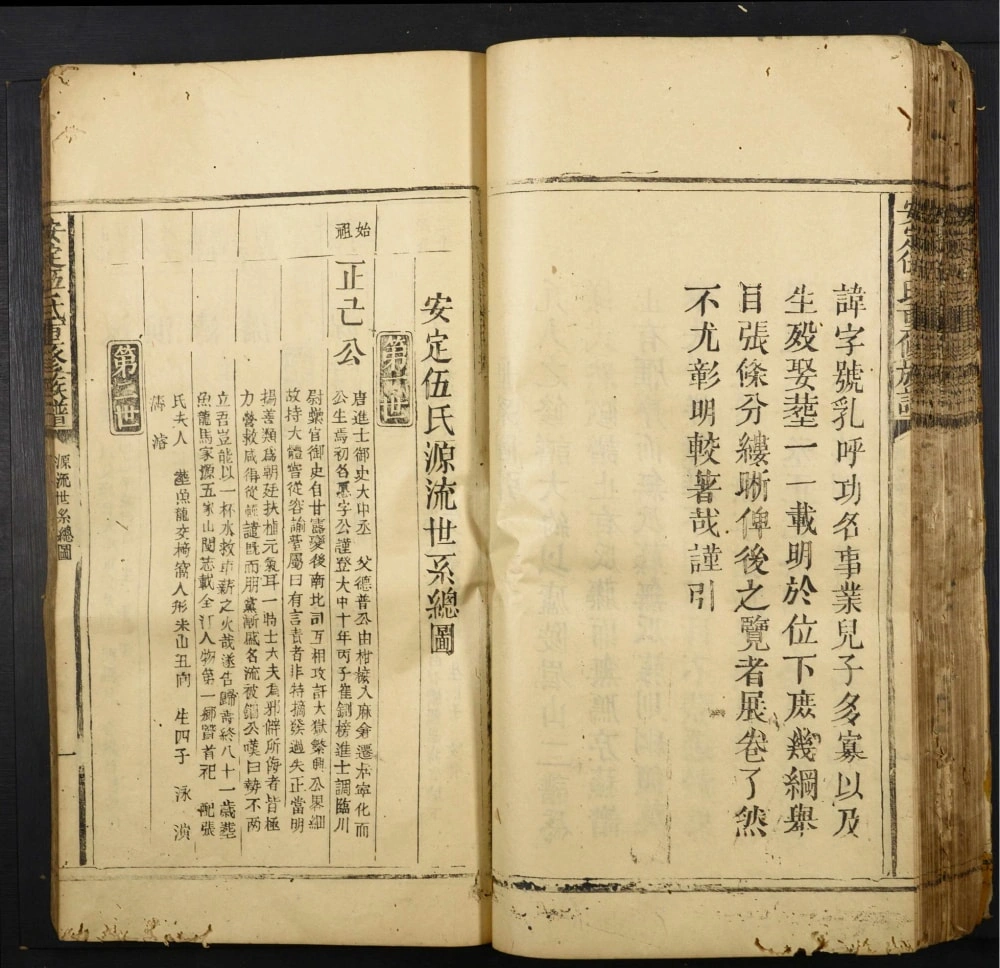 諱字號乳呼功名事業兒子多寡以及
生歿娶塟一一載明於位下庶幾綱舉
目張條分縷晰俾後之覽者展卷了然
不尤彰明較著哉謹引
安定伍氏源流世系總圖
第一世
始祖
正己公
唐進士御史大中丞 父德普公由柑檨入麻倉遷本寧化而
公生焉初名愿字公謹登大中十年丙子崔鉶榜進士調臨川
尉薬官御史自甘露變後南北司互相攻訐大獄繁興公畧細
故持大體嘗從容諭曹屬曰有言責者非特摘發過失正當明
揚善類為朝廷扶植元氣耳一時士大夫為邪僻所侮者皆極
力營救咸得從輕譴既而朋黨漸盛名流被錮公嘆曰勢不兩
立吾豈能以一杯水救車薪之火哉遂告歸壽終八十一歲塟
魚龍馬家源五家山閩志載全汀人物第一鄉賢首祀 配張
氏夫人 塟魚龍交椅窩人形未山丑向 生四子 泳 濆
濤 濬
第二世
安定伍氏重修族譜
源流世系總圖
一